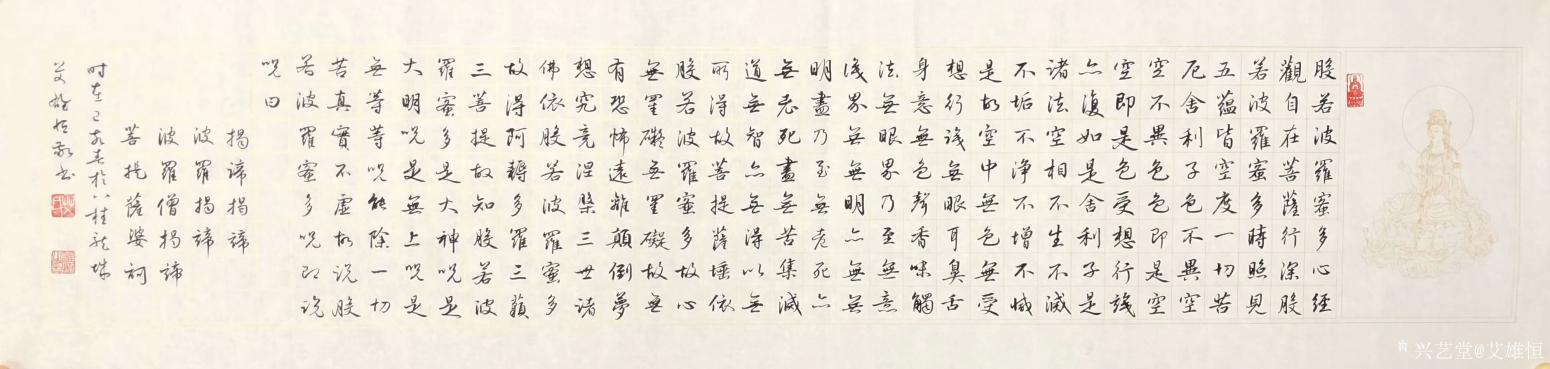 般若波羅蜜多心經
觀自在菩薩行深般
若波羅蜜多時照見
五蘊皆空度一切苦
厄舍利子色不異空
空不異色色即是空
空即是色受想行識
亦復如是舍利子是
諸法空相不生不滅
不垢不淨不增不減
是故空中無色無受
想行識無眼耳鼻舌
身意無色聲香味觸
法無眼界乃至無意
識界無無明亦無無
明盡乃至無老死亦
無老死盡無苦集滅
道無智亦無得以無
所得故菩提薩埵依
般若波羅蜜多故心
無罣礙無罣礙故無
有恐怖遠離顛倒夢
想究竟涅槃三世諸
佛依般若波羅蜜多
故得阿耨多羅三藐
三菩提故知般若波
羅蜜多是大神咒是
大明咒是無上咒是
無等等咒能除一切
苦真實不虛故說般
若波羅蜜多咒即說
咒曰
揭諦揭諦
波羅揭諦
波羅僧揭諦
菩提薩婆訶
時在己亥春於八桂龍城
艾雄恒敬書
兴艺堂@艾雄恒